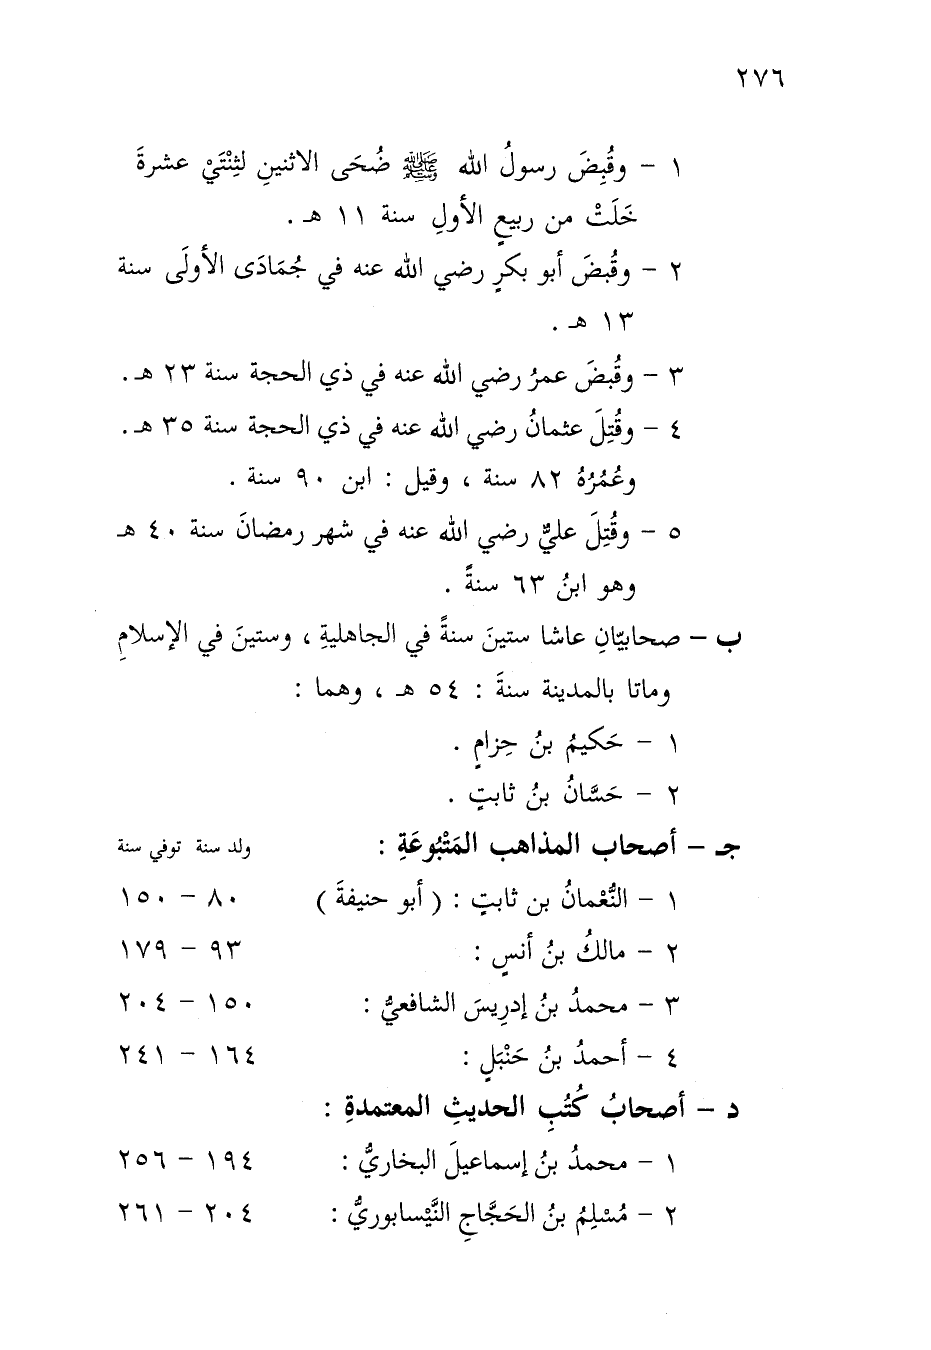 ٢٧٦
١ - وقُبِضَ رسولُ الله ﷺ ضُحَى الاثنينِ لثِنْتَيْ عشرةَ
خَلَتْ من ربيعٍ الأولِ سنة ١١ هـ .
٢ - وقُبضَ أبو بكرٍ رضي الله عنه في جُمَادَى الأولَى سنة
١٣ هـ .
٣ - وقُبضَ عمرُ رضي الله عنه في ذي الحجة سنة ٢٣ هـ .
٤ - وقُتِلَ عثمانُ رضي الله عنه في ذي الحجة سنة ٣٥ هـ .
وعُمُرُهُ ٨٢ سنة ، وقيل : ابن ٩٠ سنة .
٥ - وقُتِلَ عليٌّ رضي الله عنه في شهر رمضانَ سنة ٤٠ هـ
وهو ابنُ ٦٣ سنةً .
ب - صحابيّانِ عاشا ستينَ سنةً في الجاهليةِ ، وستينَ في الإسلامِ
وماتا بالمدينة سنةَ : ٥٤ هـ ، وهما :
١ - حَكيمُ بنُ حِزامٍ .
٢ - حَسَّانُ بنُ ثابتٍ .
جـ - أصحاب المذاهب المَتْبُوعَةِ : ولد سنة توفي سنة
١ - النُّعْمانُ بن ثابتٍ : ( أبو حنيفةَ ) ٨٠ - ١٥٠
٢ - مالكُ بنُ أنسٍ : ٩٣ - ١٧٩
٣ - محمدُ بنُ إدرِيسَ الشافعيُّ : ١٥٠ - ٢٠٤
٤ - أحمدُ بنُ حَنْبَلٍ : ١٦٤ - ٢٤١
د - أصحابُ كُتُبِ الحديثِ المعتمدةِ :
١ - محمدُ بنُ إسماعيلَ البخاريُّ : ١٩٤ - ٢٥٦
٢ - مُسْلِمُ بنُ الحَجَّاجِ النَّيْسابوريُّ : ٢٠٤ - ٢٦١